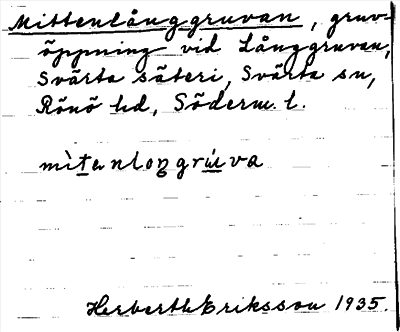 Mittenlånggruvan, gruv-
öppning vid Långgruvan,
Svärta säteri, Svärta sn,
Rönö hd, Söderm. l.
mìtenloŋgrúva
Herberth Eriksson 1935.